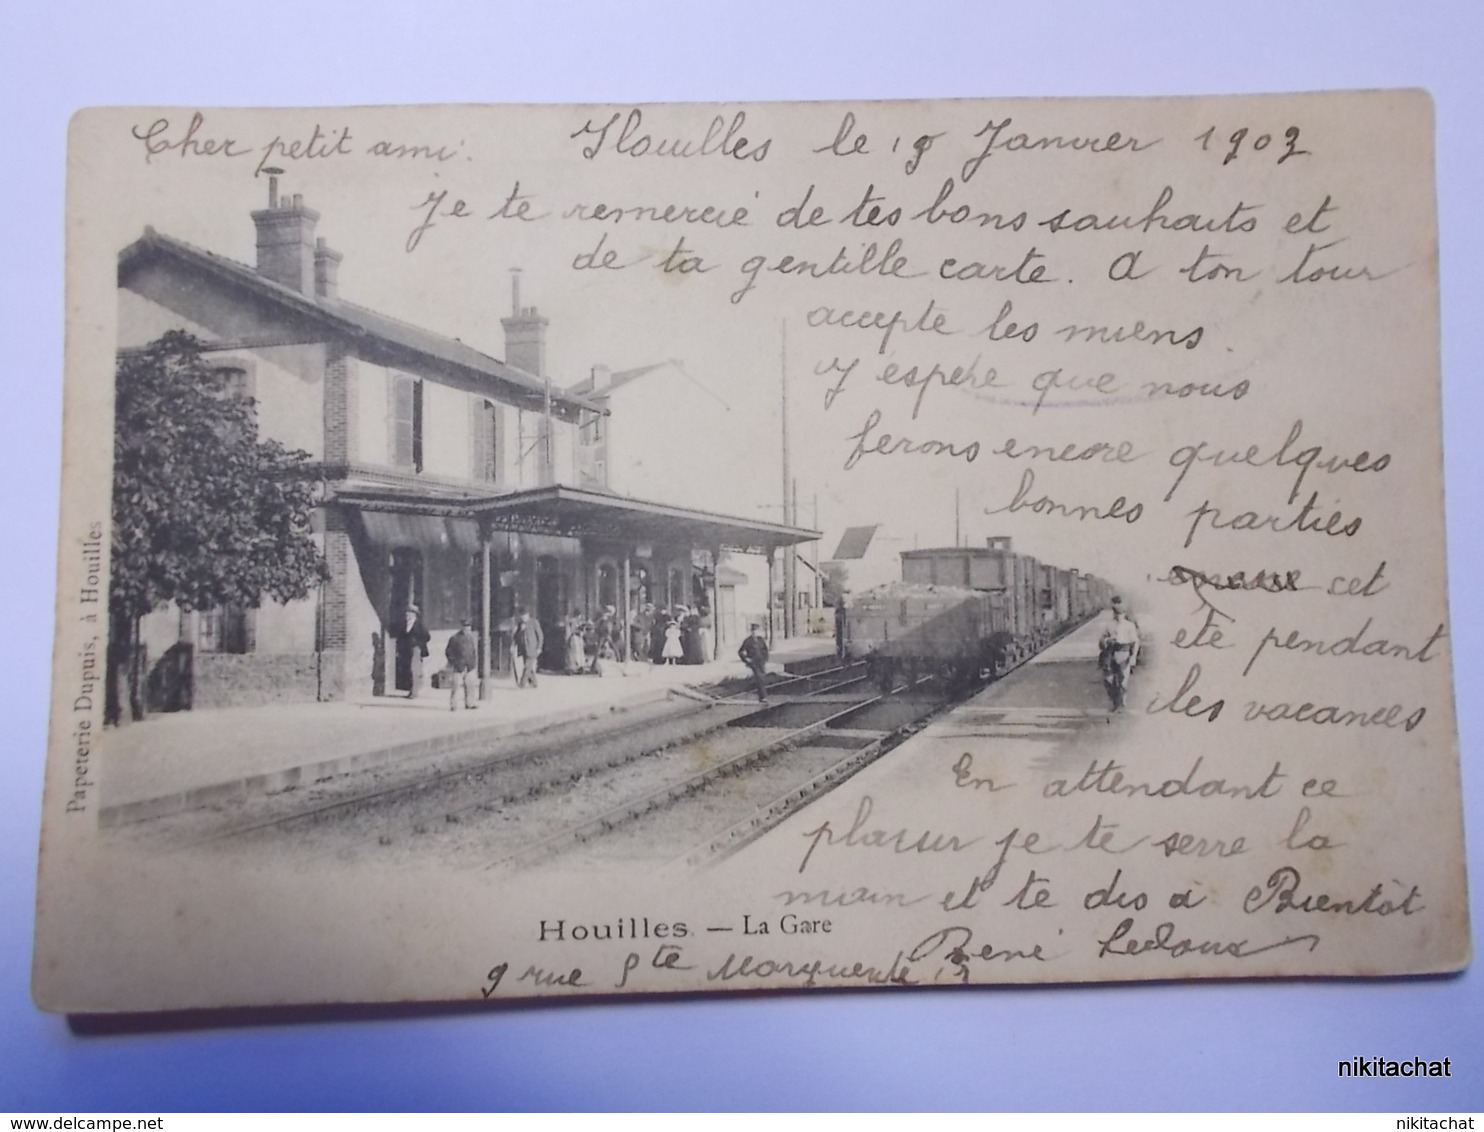 Cher petit ami.
Houilles le 19 Janvier 1903
Je te remercie de tes bons souhaits et
de ta gentille carte. A ton tour
accepte les miens.
J'éspère que nous
ferons encore quelques
bonnes parties
cet
été pendant
les vacances
En attendant ce
plaisir je te serre la
main et te dis à Bientôt
René Ledoux
9 rue Ste Marguerite
Houilles. — La Gare
Papeterie Dupuis, à Houilles
nikitachat
www.delcampe.net
nikitachat